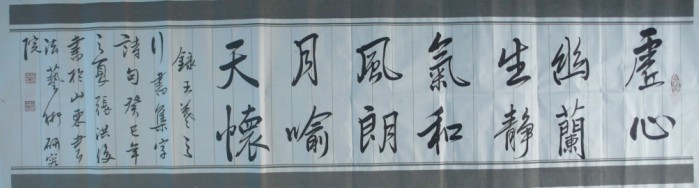 虚心
幽蘭
生静
氣和
風朗
月喻
天懷
録王羲之
行書集字
詩句癸巳年
之夏張洪俊
書於山東書
法藝術研究
院